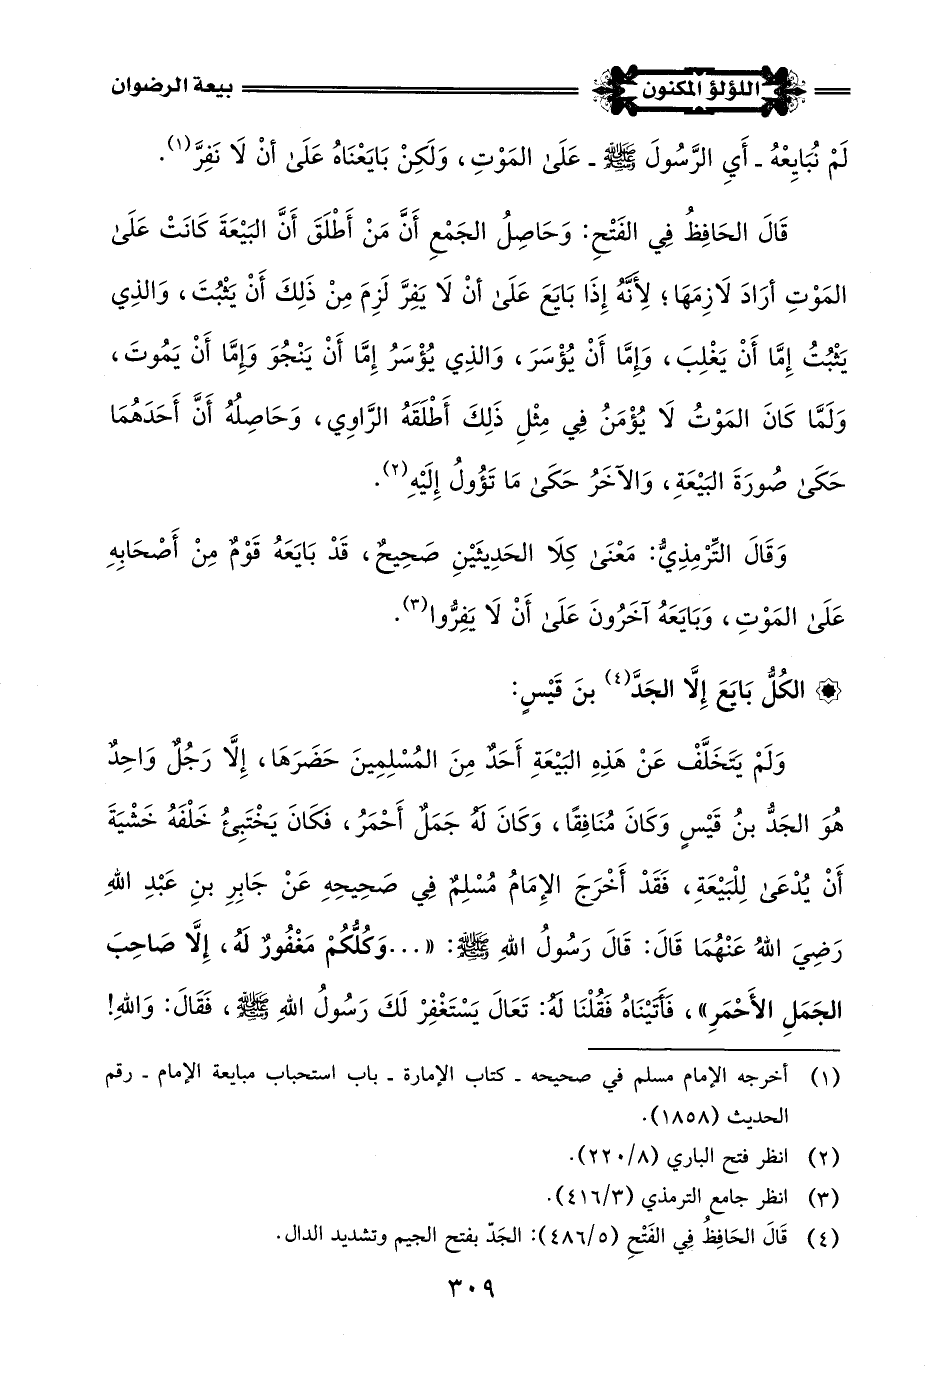 اللؤلؤ المكنون
بيعة الرضوان
لَمْ نُبَايِعْهُ - أَيِ الرَّسُولَ ﷺ - عَلَىٰ المَوْتِ، وَلَكِنْ بَايَعْنَاهُ عَلَىٰ أَنْ لَا نَفِرَّ(١).
قَالَ الحَافِظُ فِي الفَتْحِ: وَحَاصِلُ الجَمْعِ أَنَّ مَنْ أَطْلَقَ أَنَّ البَيْعَةَ كَانَتْ عَلَىٰ
المَوْتِ أَرَادَ لَازِمَهَا؛ لِأَنَّهُ إِذَا بَايَعَ عَلَىٰ أَنْ لَا يَفِرَّ لَزِمَ مِنْ ذَلِكَ أَنْ يَثْبُتَ، وَالذِي
يَثْبُتُ إِمَّا أَنْ يَغْلِبَ، وَإِمَّا أَنْ يُؤْسَرَ، وَالذِي يُؤْسَرُ إِمَّا أَنْ يَنْجُوَ وَإِمَّا أَنْ يَمُوتَ،
وَلَمَّا كَانَ المَوْتُ لَا يُؤْمَنُ فِي مِثْلِ ذَلِكَ أَطْلَقَهُ الرَّاوِي، وَحَاصِلُهُ أَنَّ أَحَدَهُمَا
حَكَىٰ صُورَةَ البَيْعَةِ، وَالآخَرُ حَكَىٰ مَا تَؤُولُ إِلَيْهِ(٢).
وَقَالَ التِّرْمِذِيُّ: مَعْنَىٰ كِلَا الحَدِيثَيْنِ صَحِيحٌ، قَدْ بَايَعَهُ قَوْمٌ مِنْ أَصْحَابِهِ
عَلَىٰ المَوْتِ، وَبَايَعَهُ آخَرُونَ عَلَىٰ أَنْ لَا يَفِرُّوا(٣).
الكُلُّ بَايَعَ إِلَّا الجَدَّ(٤) بنَ قَيْسٍ:
وَلَمْ يَتَخَلَّفْ عَنْ هَذِهِ البَيْعَةِ أَحَدٌ مِنَ المُسْلِمِينَ حَضَرَهَا، إِلَّا رَجُلٌ وَاحِدٌ
هُوَ الجَدُّ بنُ قَيْسٍ وَكَانَ مُنَافِقًا، وَكَانَ لَهُ جَمَلٌ أَحْمَرُ، فَكَانَ يَخْتَبِئُ خَلْفَهُ خَشْيَةَ
أَنْ يُدْعَىٰ لِلْبَيْعَةِ، فَقَدْ أَخْرَجَ الإِمَامُ مُسْلِمٌ فِي صَحِيحِهِ عَنْ جَابِرِ بنِ عَبْدِ اللهِ
رَضِيَ اللهُ عَنْهُمَا قَالَ: قَالَ رَسُولُ اللهِ ﷺ: «...وَكُلُّكُمْ مَغْفُورٌ لَهُ، إِلَّا صَاحِبَ
الجَمَلِ الأَحْمَرِ»، فَأَتَيْنَاهُ فَقُلْنَا لَهُ: تَعَالَ يَسْتَغْفِرْ لَكَ رَسُولُ اللهِ ﷺ، فَقَالَ: وَاللهِ!
(١) أخرجه الإمام مسلم في صحيحه - كتاب الإمارة - باب استحباب مبايعة الإمام - رقم
الحديث (١٨٥٨).
(٢) انظر فتح الباري (٨/ ٢٢٠).
(٣) انظر جامع الترمذي (٣/ ٤١٦).
(٤) قَالَ الحَافِظُ فِي الفَتْحِ (٥/ ٤٨٦): الجَدّ بفتح الجيم وتشديد الدال.
٣٠٩